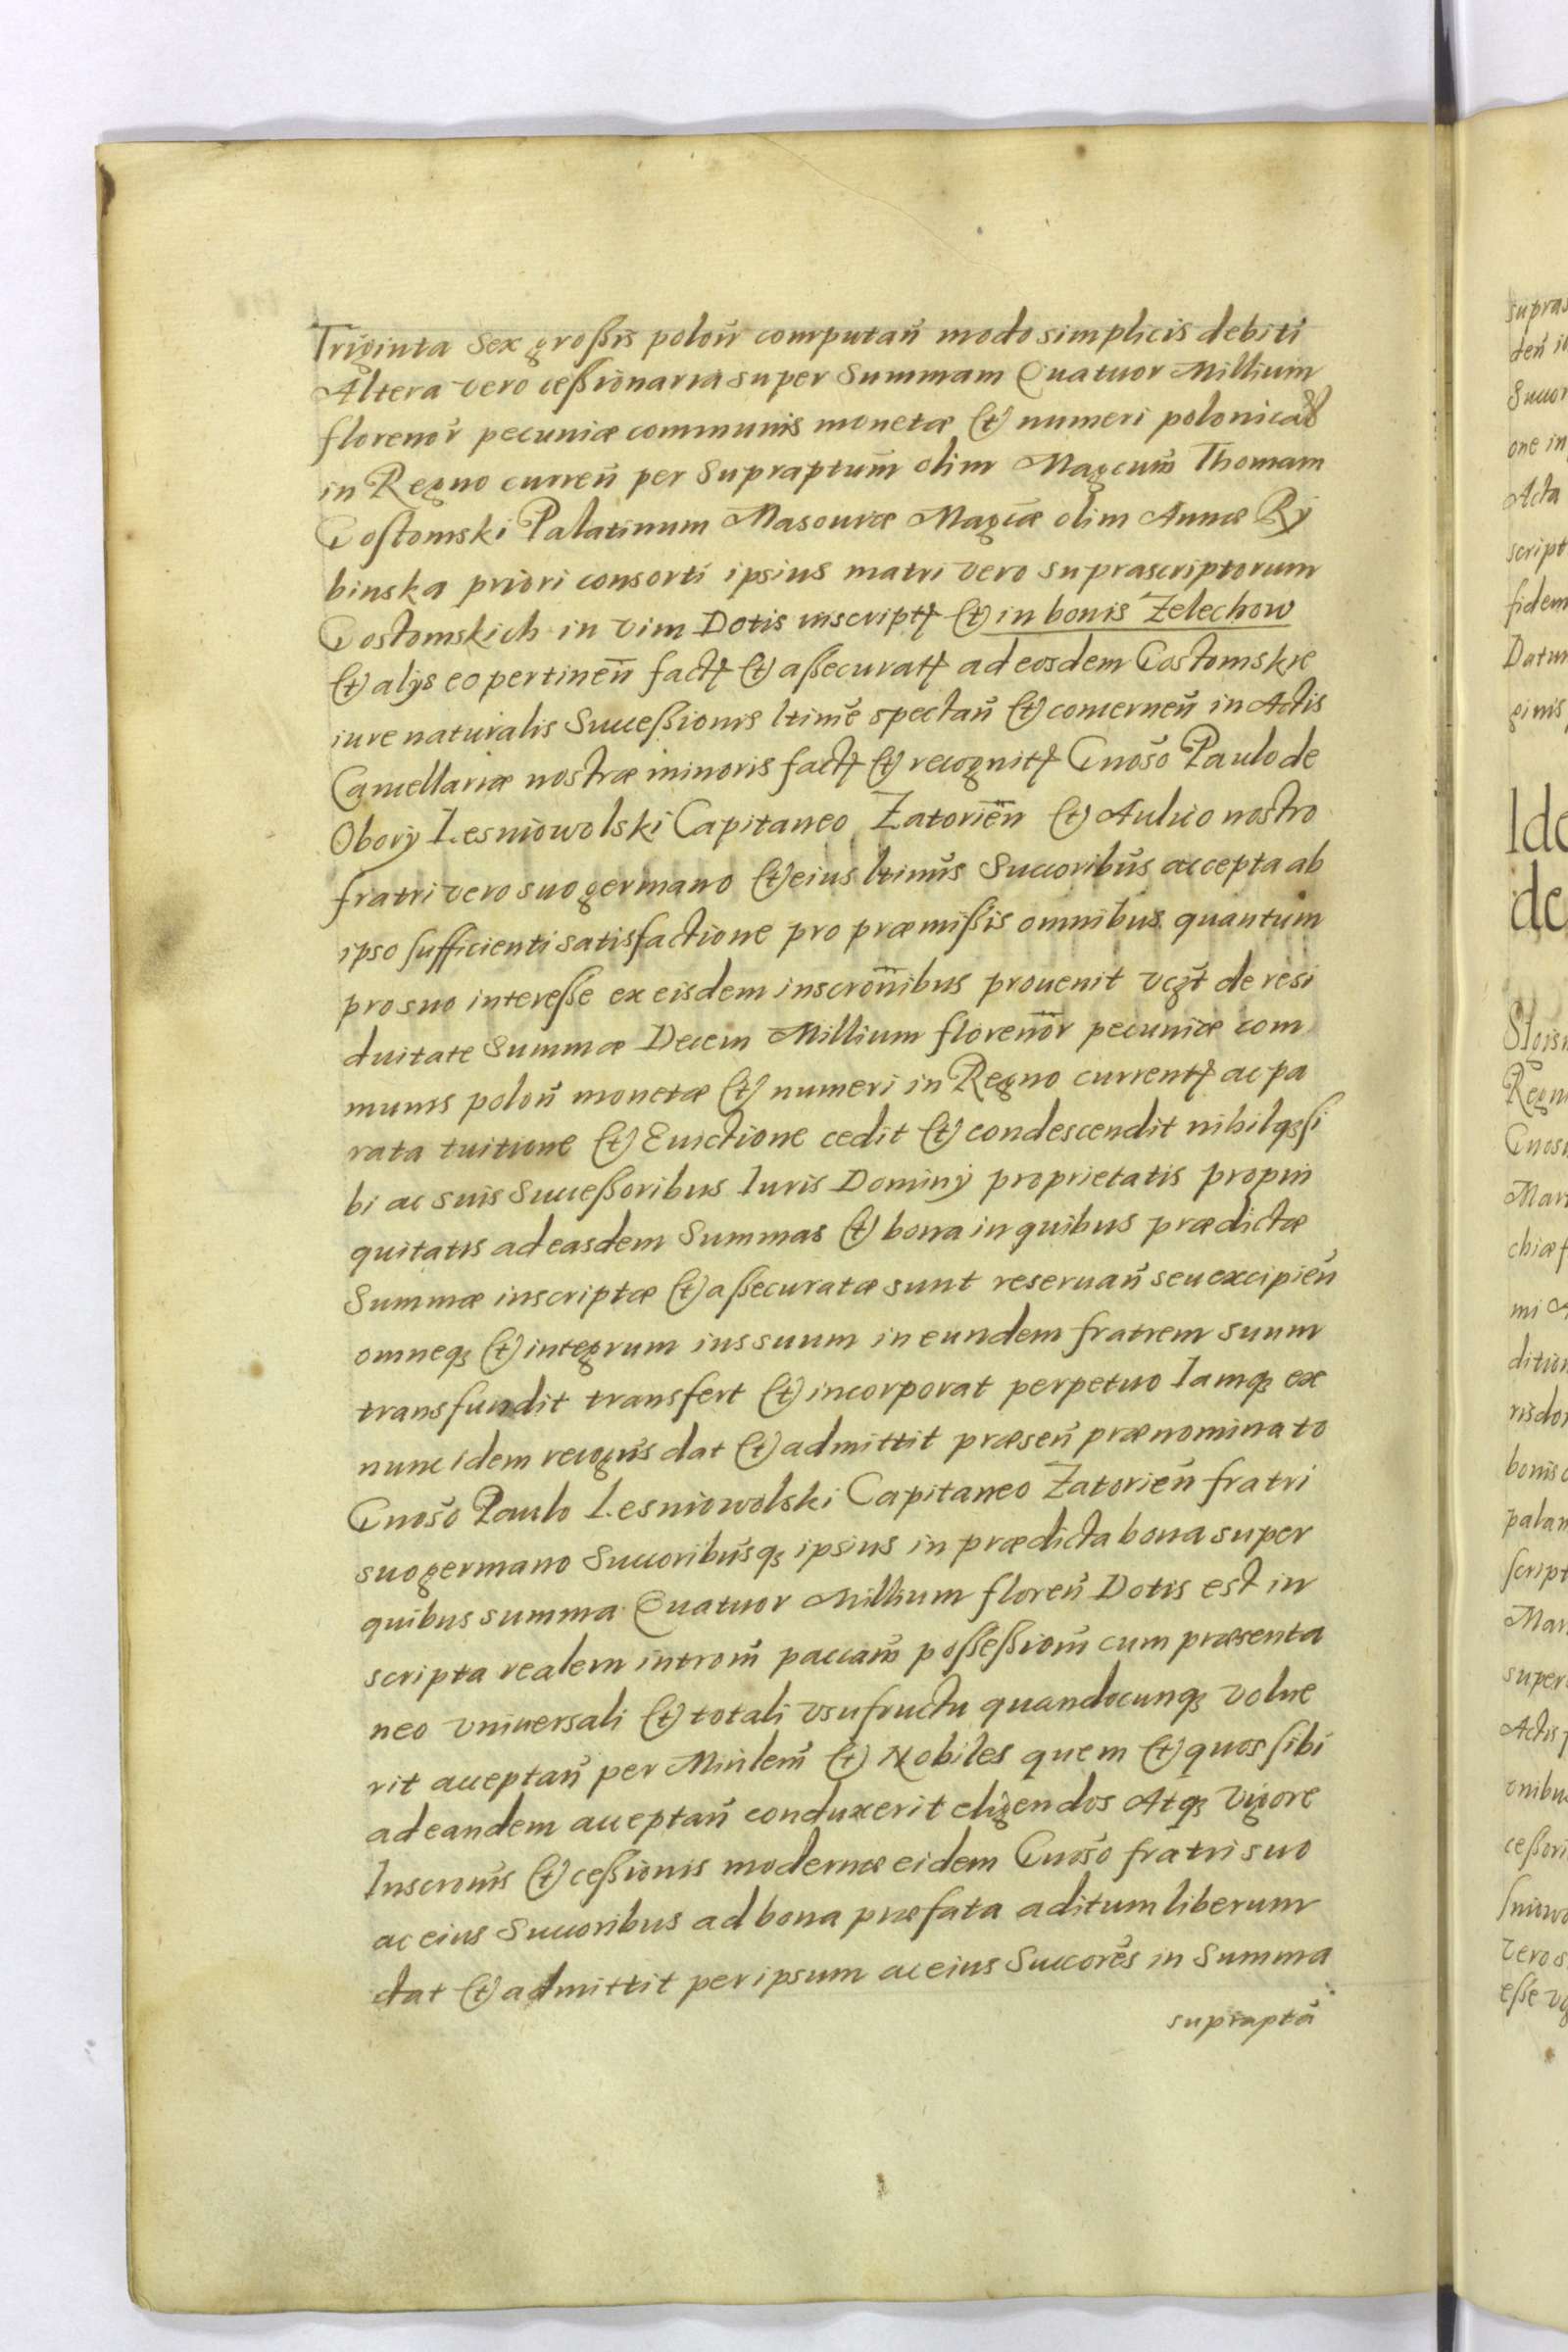 Triginta Sex großis polon̄ computan̄ modo simplicis debiti
Altera vero ceßionaria super Summam Quatuor Millium
florenor̄ pecuniæ communis monetæ et numeri polonicad
in Regno curren̄ per Supraptum̄ olim Magcum̄ Thomam
Gostomski Palatinum Masouiæ Magcæ olim Annæ Ry
binska priori consorti ipsius matri vero suprascriptorum
Gostomskich in vim Dotis inscriptꝭ et in bonis Zelechow
et alys eo pertinen̄ factꝭ et aßecuratꝭ ad eosdem Gostomskie
iure naturalis Succeßionis ltime̅ spectan̄ et concernen̄ in Actis
Cancellariæ nostræ minoris factꝭ et recognitꝭ Gnoso̅ Paulo de
Obory Lesniowolski Capitaneo Zatorien̄ et Aulico nostro
fratri vero suo germano et eius ltimis̅ Succoribus̅ accepta ab
ipso sufficienti satisfactione pro præmißis omnibus quantum
pro suo intereße ex eisdem inscron̅ibus prouenit vcz̅t de resi
duitate Summæ Decem Millium florenor̅ pecuniæ com
munis polon̄ monetæ et numeri in Regno currentꝭ ac pa
rata tuitione et Euictione cedit et condescendit nihilqꝫ si
bi ac suis Succeßoribus Iuris Dominy proprietatis propin
quitatis ad easdem Summas et bona in quibus prædictæ
Summæ inscriptæ et aßecuratæ sunt reseruan̄ seu excipien̄
omneqꝫ et integrum ius suum in eundem fratrem suum
transfundit transfert et incorporat perpetuo Iamqꝫ ex
nunc idem recogns̅ dat et admittit præsen̄ prænominato
Gnoso̅ Paulo Lesniowolski Capitaneo Zatorien̄ fratri
suo germano Succoribus̅qꝫ ipsius in prædicta bona super
quibus summa Quatuor Millium floren̄ Dotis est in
scripta realem introm̅ paccam̅ poßeßiom̅ cum præsenta
neo vniuersali et totali vsufructu quandocunqꝫ volue
rit acceptan̄ per Minlem̅ et Nobiles quem et quos sibi
ad eandem acceptan̄ conduxerit eligendos Atqꝫ vigore
Inscronis̅ et ceßionis modernæ eidem Gnoso̅ fratri suo
ac eius Succoribus ad bona præfata aditum liberum
dat et admittit per ipsum ac eius Succores̅ in Summa
supraptā